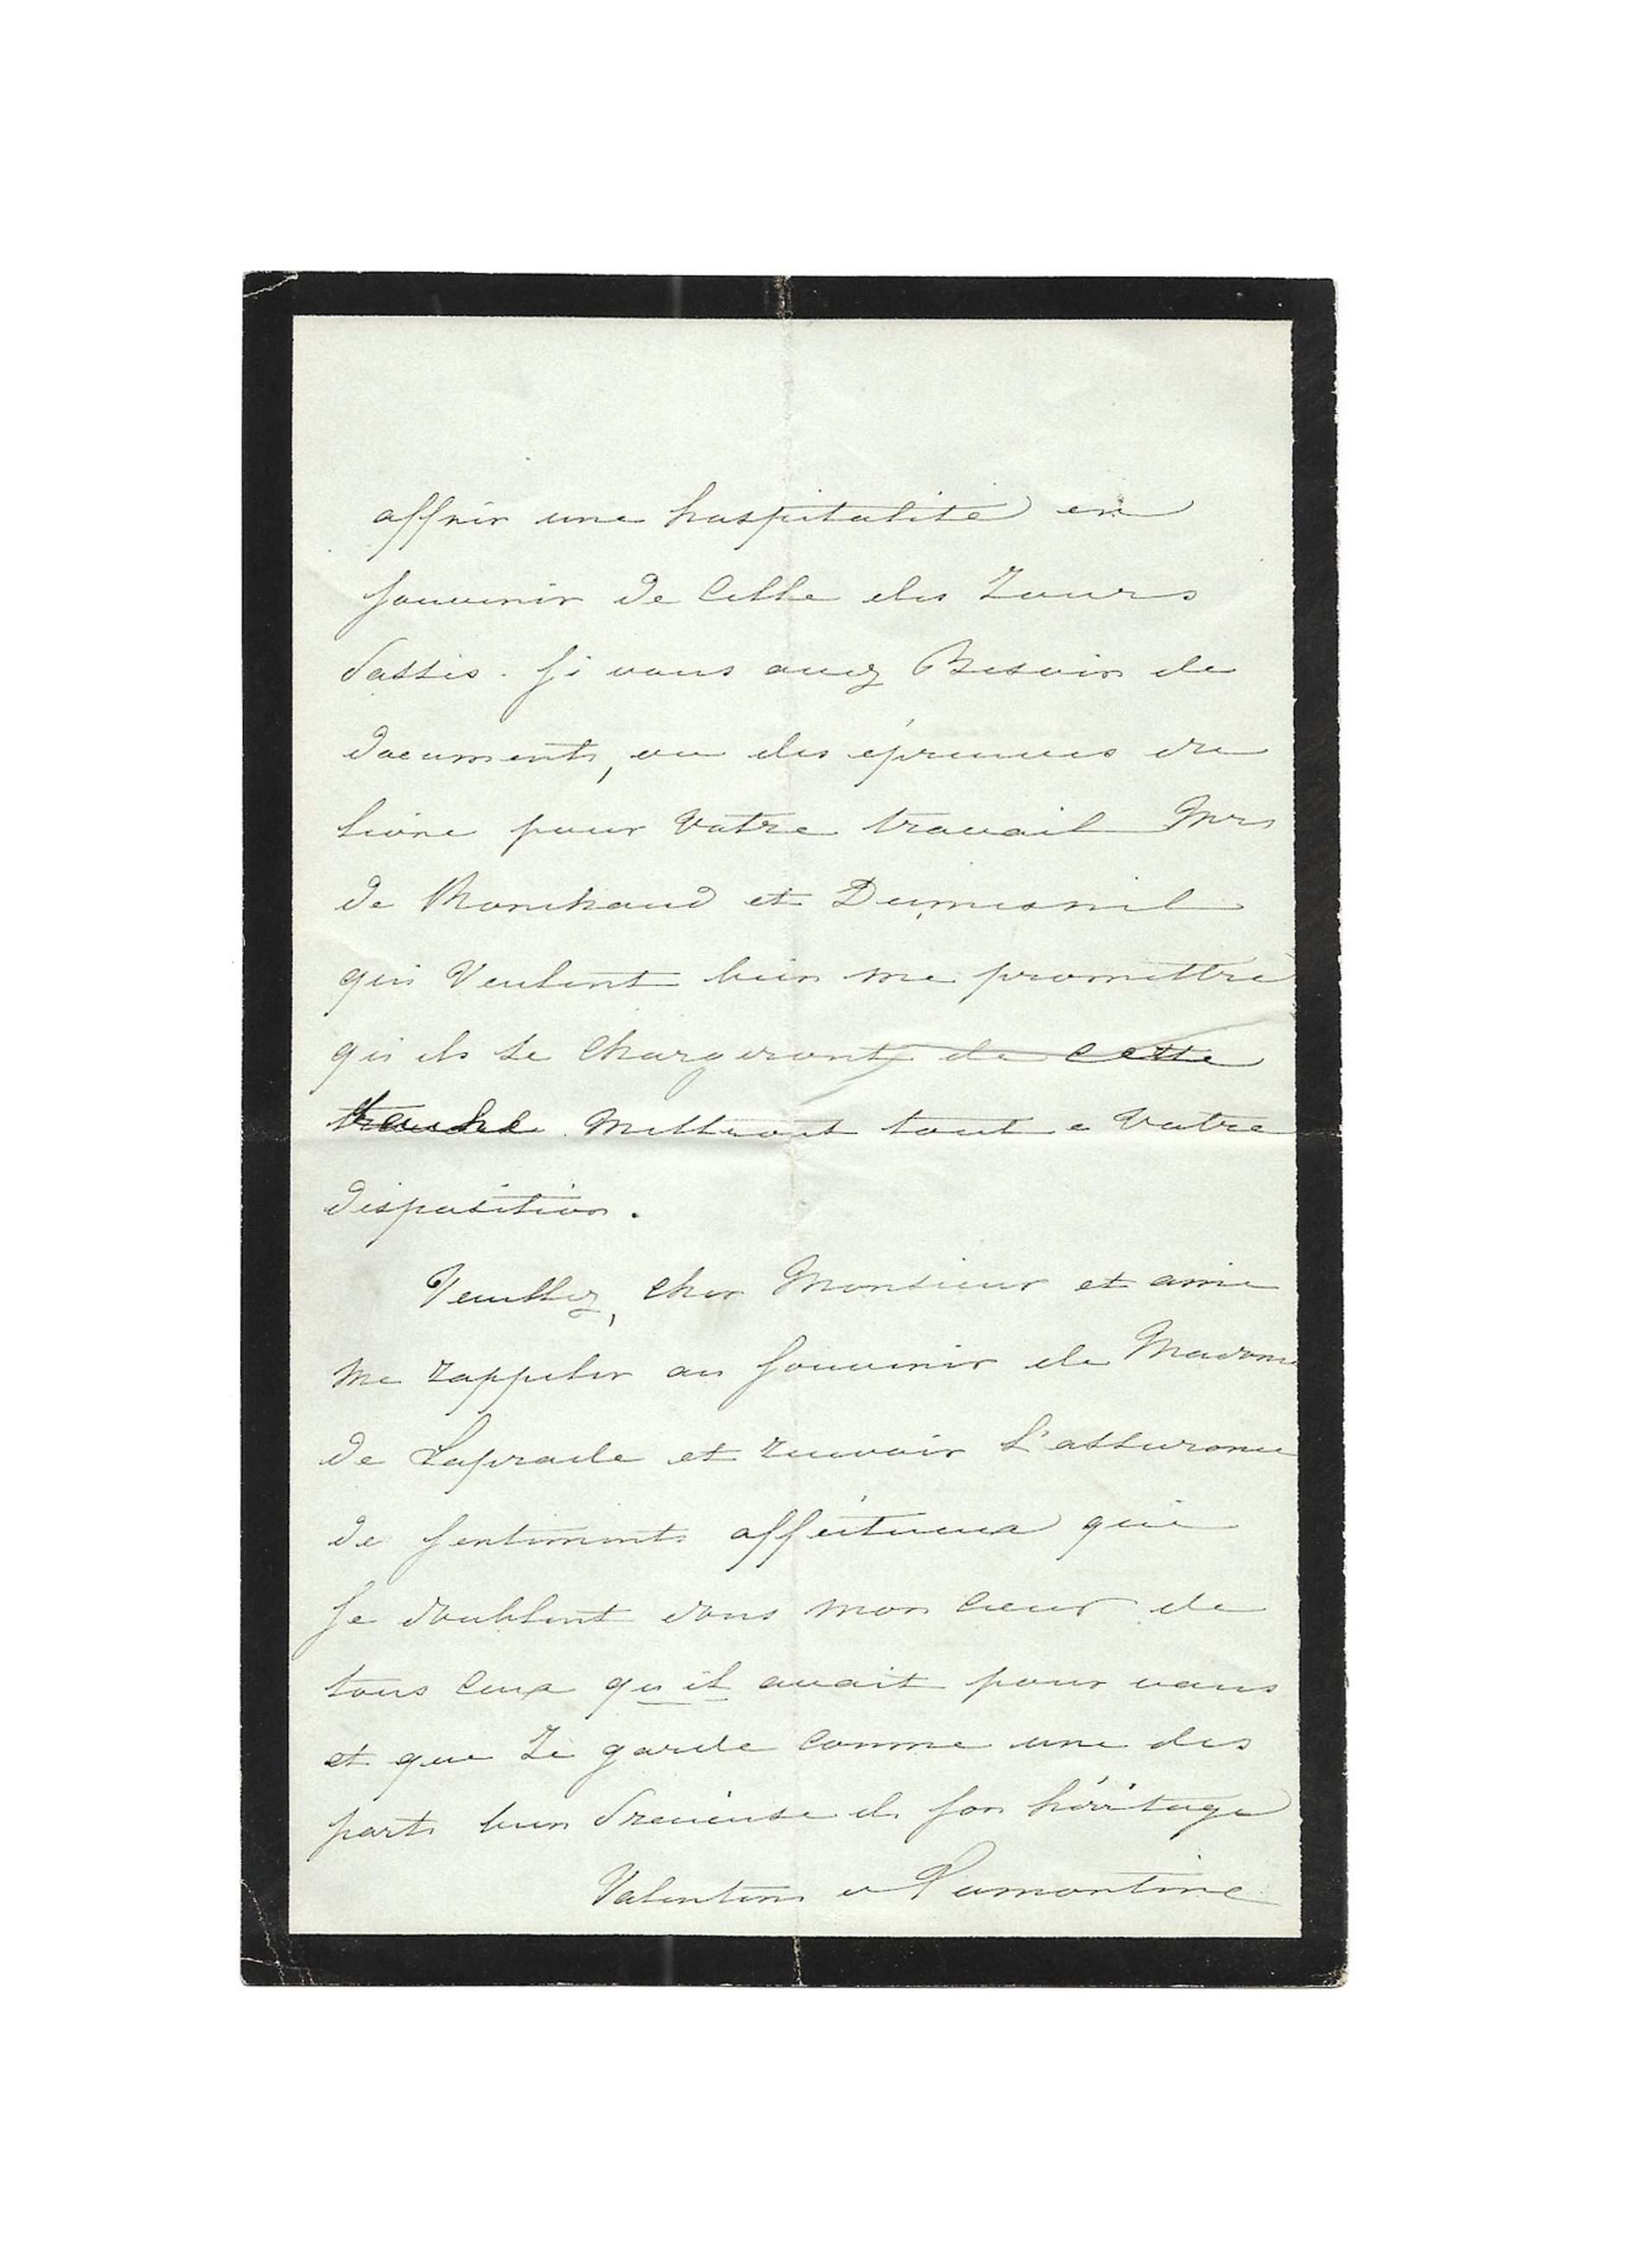 offrir une hospitalité en
souvenir de celle des Jours
Passés. Si vous avez Besoin de
documents, ou des épreuves du
livre pour votre travail Mrs
de Ronchaud et Dumesnil
qui Veulent bien me promettre
qu'ils se chargeront de cette
mettront tout a votre
disposition.
Veuillez, cher Monsieur et ami
me rappeler au souvenir de Madame
de Laprade et recevoir l'assurance
de sentiments affectueux qui
se doublent dans mon cœur de
tous ceux qu'il avait pour vous
et que Je garde comme une des
parts bien Précieuse de son héritage
Valentine de Lamartine